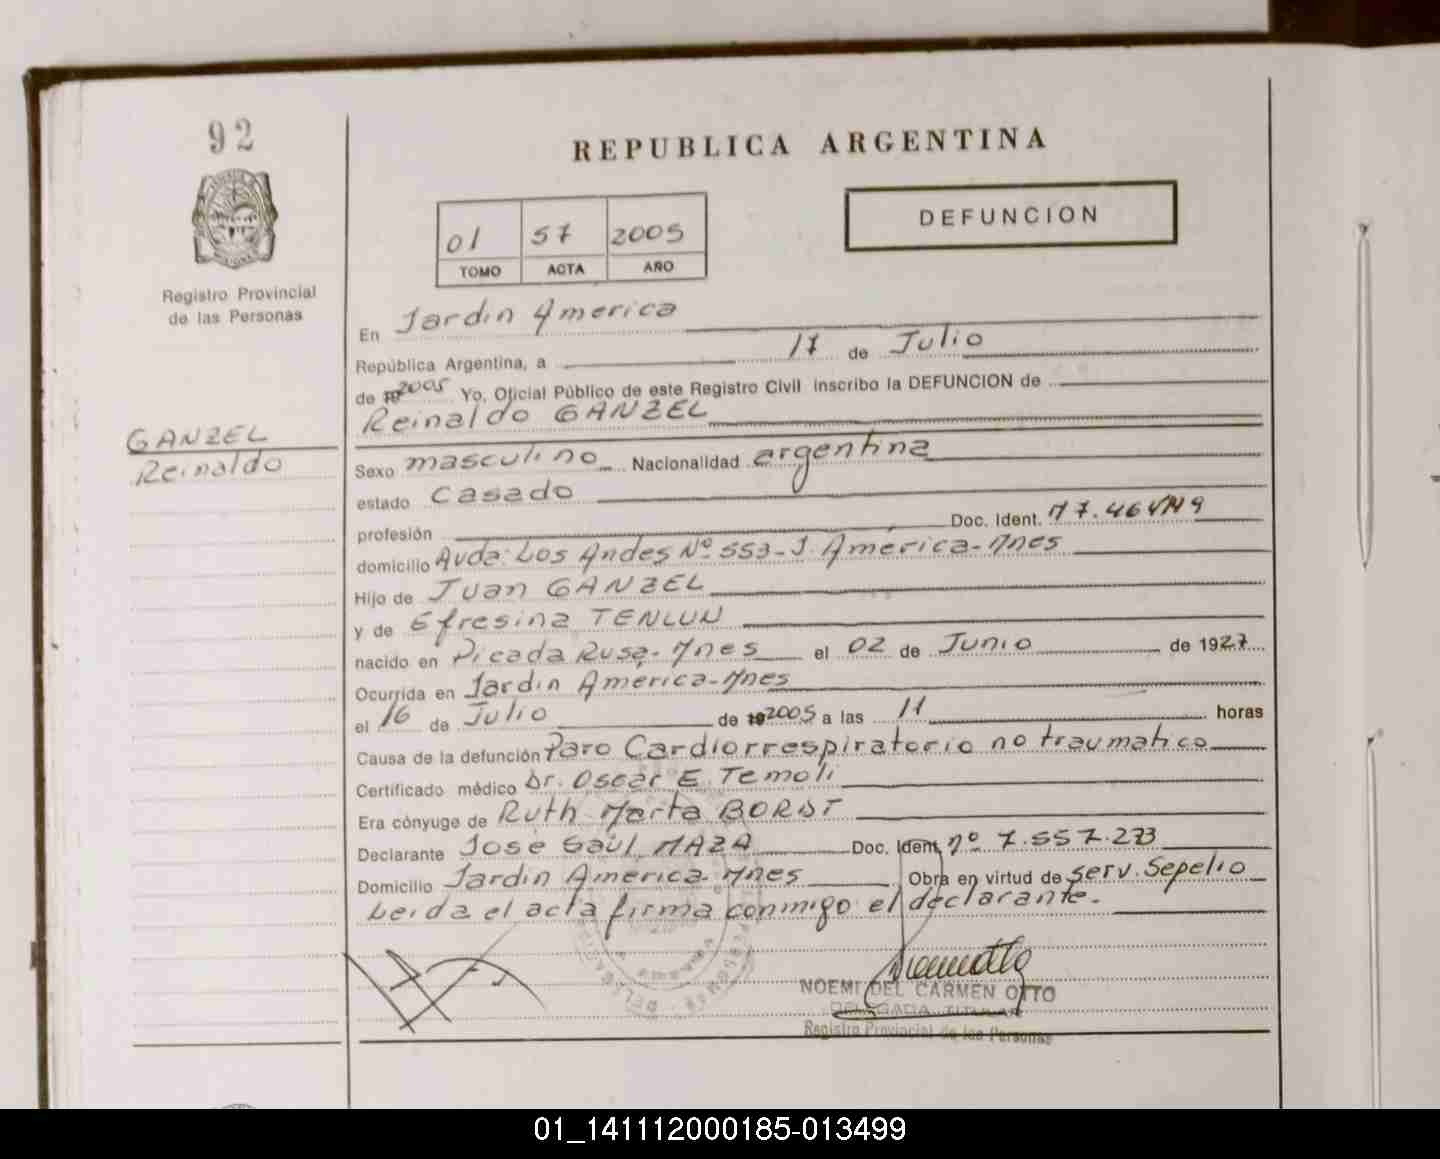 92
REPUBLICA ARGENTINA
DEFUNCION
01 57 2005
TOMO ACTA AÑO
Registro Provincial
de las Personas
En Jardin America
República Argentina, a 17 de Julio
de 2005 Yo, Oficial Público de este Registro Civil inscribo la DEFUNCION de
Reinaldo GANZEL
GANZEL
Reinaldo
Sexo masculino Nacionalidad argentina
estado Casado
profesión Doc. Ident.
domicilio Avda: Los Andes Nº 553-J. America-Mnes
Hijo de Juan GANZEL
y de Efresina TENLUN
nacido en Picada Rusa-Mnes el 02 de Junio de 1927
Ocurrida en Jardin America-Mnes
el 16 de Julio de 2005 a las 11 horas
Causa de la defunción Paro Cardiorrespiratorio no traumatico
Certificado médico Dr. Oscar E. Temoli
Era cónyuge de Ruth Marta BORST
Declarante Jose Saúl MAZA Doc. Ident. nº 7.557.273
Domicilio Jardin America-Mnes Obra en virtud de serv. Sepelio
Leida el acta firma conmigo el declarante.
NOEMI DEL CARMEN OTTO
DELEGADA TITULAR
Registro Provincial de las Personas
01_141112000185-013499